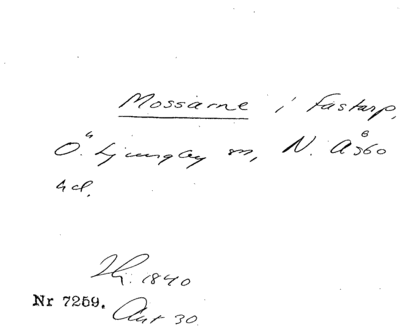 Mossarne i Fastarp,
Ö. Ljungby sn, N. Åsbo
hd.
Hj. 1840
Nr 7259. Akt 30